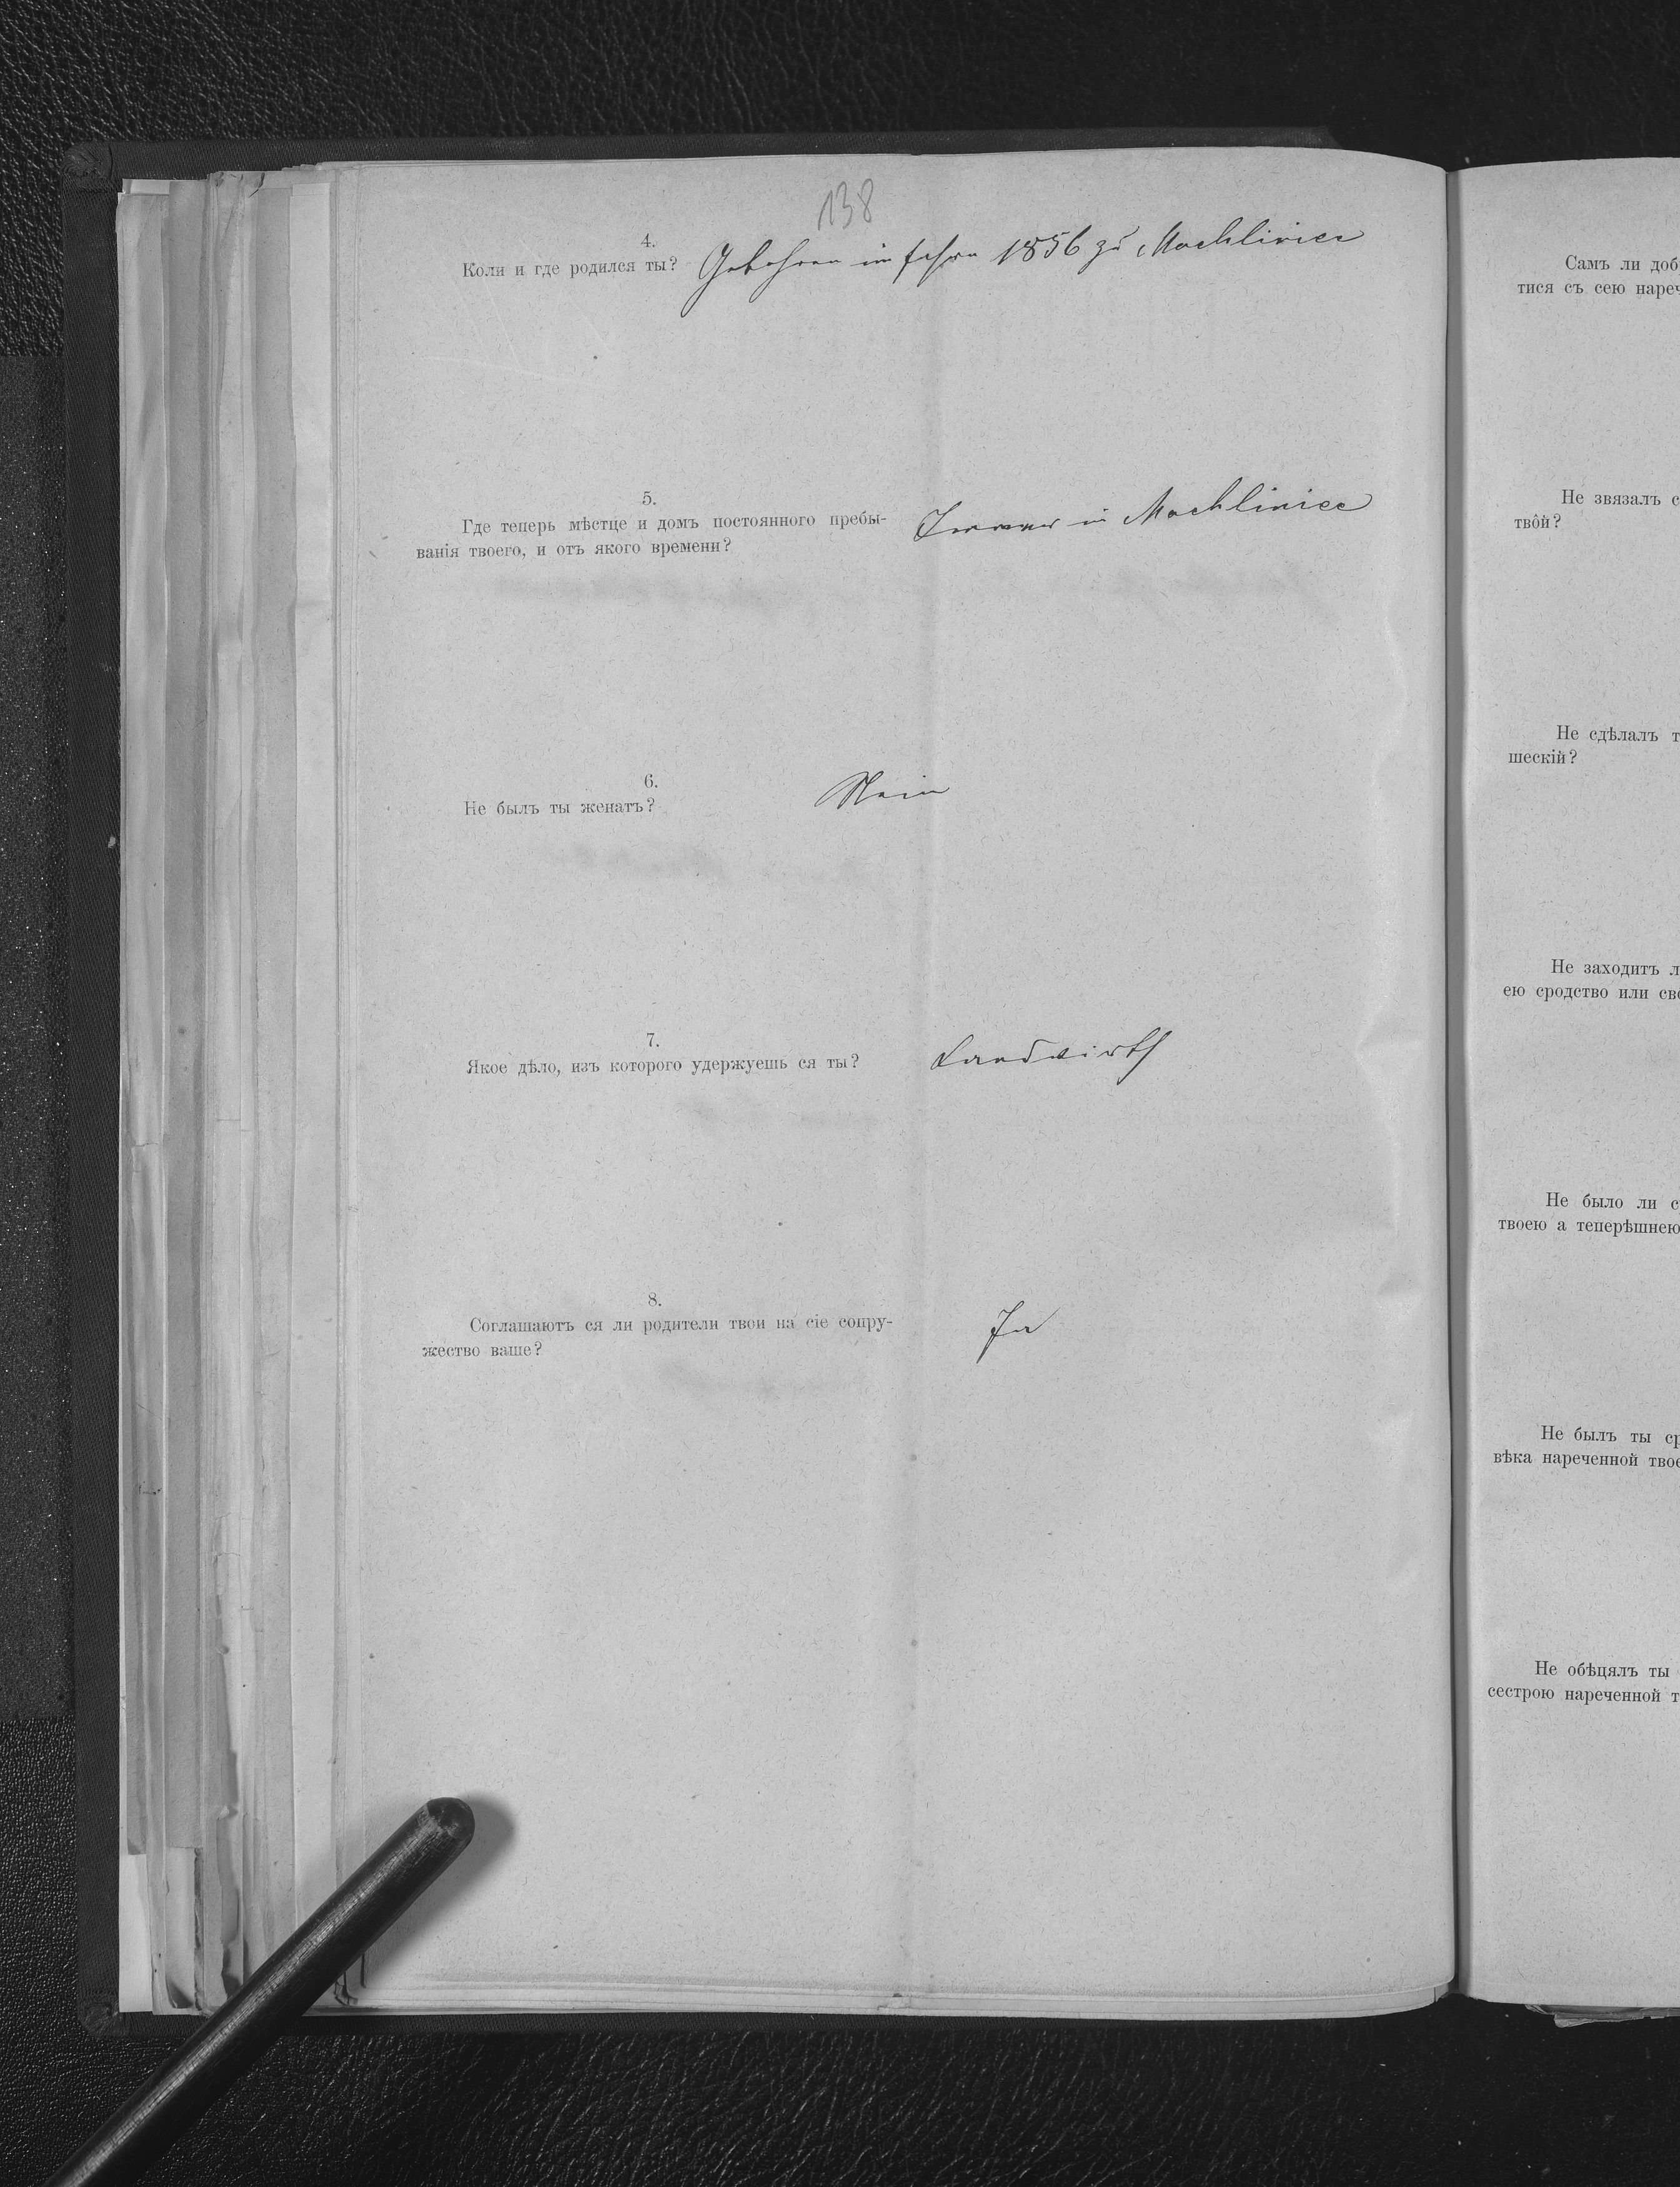 138
4.
Коли и где родился ты? Gebohren im Jahre 1856 zu Machliniec
5.
Где теперь мѣстце и домъ постоянного пребы- Immer in Machliniec
ванія твоего, и отъ якого времени?
6.
Не былъ ты женатъ? Nein
7.
Якое дѣло, изъ которого удержуешь ся ты? Landwirth
8.
Соглашаютъ ся ли родители твои на сіе супру- Ja
жество ваше?
Самъ ли доб
тися съ сею нареч
Не звязалъ с
твôй?
Не сдѣлалъ т
шескій?
Не заходитъ л
ею сродство или сво
Не было ли с
твоею а теперѣшнею
Не былъ ты ср
вѣка нареченной твое
Не обѣцялъ ты
сестрою нареченной т